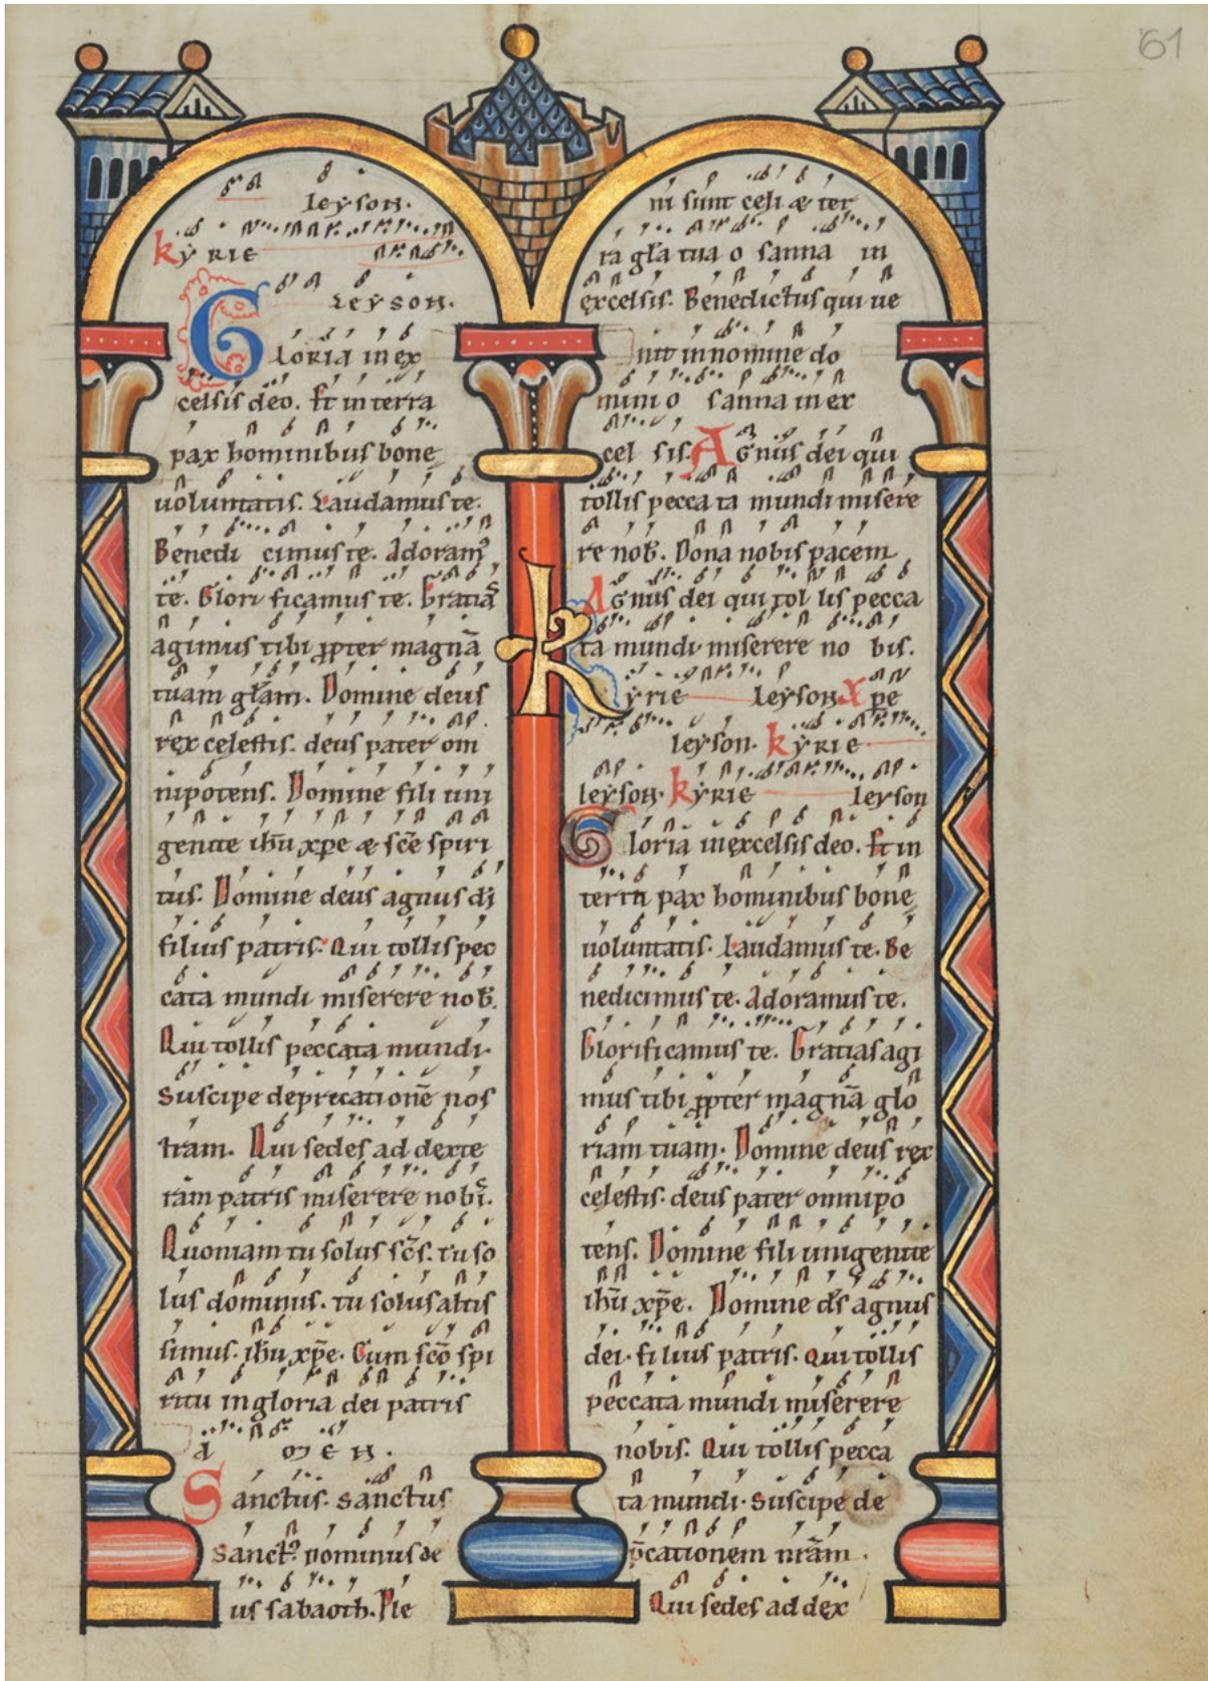 61
leyson.
kyrie
Leyson.
Gloria in ex
celsis deo. Et in terra
pax hominibus bone
uoluntatis. Laudamus te.
Benedi cimus te. Adoram᷒
te. Glori ficamus te. Gratias
agimus tibi ꝓpter magnā
tuam gl̄am. Domine deus
rex celestis. deus pater om
nipotens. Domine fili uni
genite ihū xp̄e & sc̄e spiri
tus. Domine deus agnus dī
filius patris. Qui tollis pec
cata mundi miserere nob̄.
Qui tollis peccata mundi.
Suscipe deprecationē nos
tram. Qui sedes ad dexte
ram patris miserere nobis.
Quoniam tu solus sc̄s. tu so
lus dominus. tu solus altis
simus. ihū xp̄e. Cum sc̄o spi
ritu in gloria dei patris
a men.
Sanctus. Sanctus
Sanct᷒ Dominus de
us sabaoth. Ple
ni sunt celi & ter
ra gl̄a tua o sanna in
excelsis. Benedictus qui ue
nit in nomine do
mini o sanna in ex
cel sis. Agnus dei qui
tollis pecca ta mundi misere
re nob̄. Dona nobis pacem
Agnus dei qui tol lis pecca
ta mundi miserere no bis.
Kyrie leyson xp̄e
leyson. kyrie
leyson. kyrie leyson
Gloria in excelsis deo. Et in
terra pax hominibus bone
uoluntatis. Laudamus te. Be
nedicimus te. Adoramus te.
Glorificamus te. Gratias agi
mus tibi ꝓpter magnā glo
riam tuam. Domine deus rex
celestis. deus pater omnipo
tens. Domine fili unigenite
ihū xp̄e. Domine ds̄ agnus
dei. filius patris. Qui tollis
peccata mundi miserere
nobis. Qui tollis pecca
ta mundi. Suscipe de
p̄cationem nr̄am.
Qui sedes ad dex